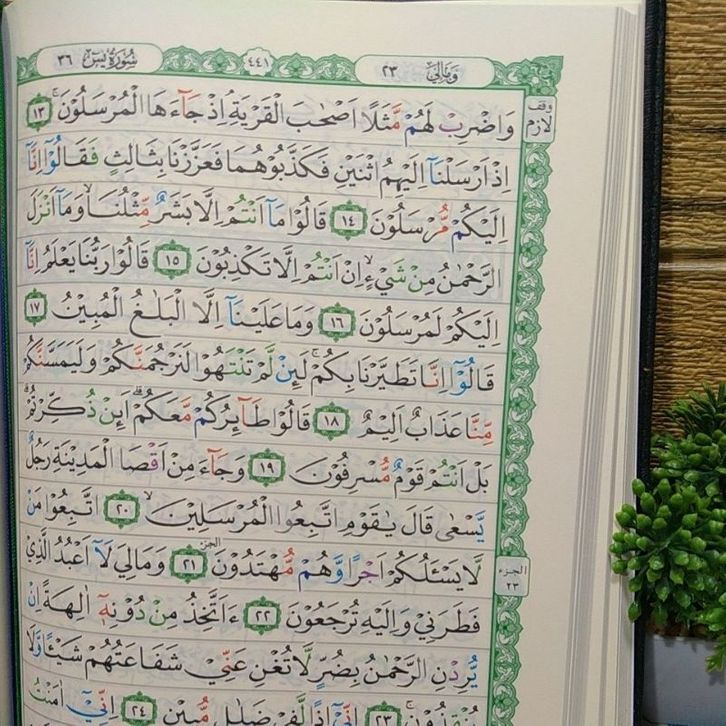 وَمَالِيَ ٢٣
٤٤١
سُوْرَةُ يٰسٓ ٣٦
وقف لازم
وَاضْرِبْ لَهُمْ مَّثَلًا اَصْحٰبَ الْقَرْيَةِۘ اِذْ جَاۤءَهَا الْمُرْسَلُوْنَۚ ١٣
اِذْ اَرْسَلْنَآ اِلَيْهِمُ اثْنَيْنِ فَكَذَّبُوْهُمَا فَعَزَّزْنَا بِثَالِثٍ فَقَالُوْٓا اِنَّآ
اِلَيْكُمْ مُّرْسَلُوْنَ ١٤ قَالُوْا مَآ اَنْتُمْ اِلَّا بَشَرٌ مِّثْلُنَاۙ وَمَآ اَنْزَلَ
الرَّحْمٰنُ مِنْ شَيْءٍۙ اِنْ اَنْتُمْ اِلَّا تَكْذِبُوْنَ ١٥ قَالُوْا رَبُّنَا يَعْلَمُ اِنَّآ
اِلَيْكُمْ لَمُرْسَلُوْنَ ١٦ وَمَا عَلَيْنَآ اِلَّا الْبَلٰغُ الْمُبِيْنُ ١٧
قَالُوْٓا اِنَّا تَطَيَّرْنَا بِكُمْۚ لَىِٕنْ لَّمْ تَنْتَهُوْا لَنَرْجُمَنَّكُمْ وَلَيَمَسَّنَّكُمْ
مِّنَّا عَذَابٌ اَلِيْمٌ ١٨ قَالُوْا طَاۤىِٕرُكُمْ مَّعَكُمْۗ اَىِٕنْ ذُكِّرْتُمْۗ
بَلْ اَنْتُمْ قَوْمٌ مُّسْرِفُوْنَ ١٩ وَجَاۤءَ مِنْ اَقْصَا الْمَدِيْنَةِ رَجُلٌ
يَّسْعٰى قَالَ يٰقَوْمِ اتَّبِعُوا الْمُرْسَلِيْنَۙ ٢٠ اتَّبِعُوْا مَنْ
لَّا يَسْـَٔلُكُمْ اَجْرًا وَّهُمْ مُّهْتَدُوْنَ ٢١ الجزء وَمَا لِيَ لَآ اَعْبُدُ الَّذِيْ
الجزء ٢٣
فَطَرَنِيْ وَاِلَيْهِ تُرْجَعُوْنَ ٢٢ ءَاَتَّخِذُ مِنْ دُوْنِهٖٓ اٰلِهَةً اِنْ
يُّرِدْنِ الرَّحْمٰنُ بِضُرٍّ لَّا تُغْنِ عَنِّيْ شَفَاعَتُهُمْ شَيْـًٔا وَّلَا
يُنْقِذُوْنِۚ ٢٣ اِنِّيْٓ اِذًا لَّفِيْ ضَلٰلٍ مُّبِيْنٍ ٢٤ اِنِّيْٓ اٰمَنْتُ